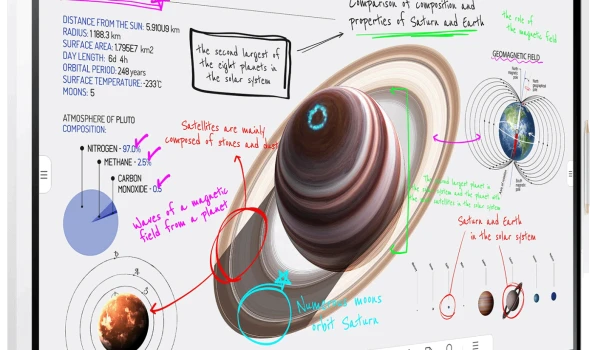 Comparison of composition and
properties of Saturn and Earth
the role of
the magnetic field
DISTANCE FROM THE SUN: 5.910U9 km
RADIUS: 1188.3 km
SURFACE AREA: 1.795E7 km2
DAY LENGTH: 6d 4h
ORBITAL PERIOD: 248 years
SURFACE TEMPERATURE: -233°C
MOONS: 5
the second largest of
the eight planets in
the solar system
GEOMAGNETIC FIELD
ATMOSPHERE OF PLUTO
COMPOSITION:
NITROGEN - 97.0%
METHANE - 2.5%
CARBON
MONOXIDE - 0.5
Satellites are mainly
composed of stones and dust
Waves of a magnetic
field from a planet
The second largest planet in
the solar system and the planet with
the most satellites in the solar system
Saturn and Earth
in the solar system
Numerous moons
orbit Saturn